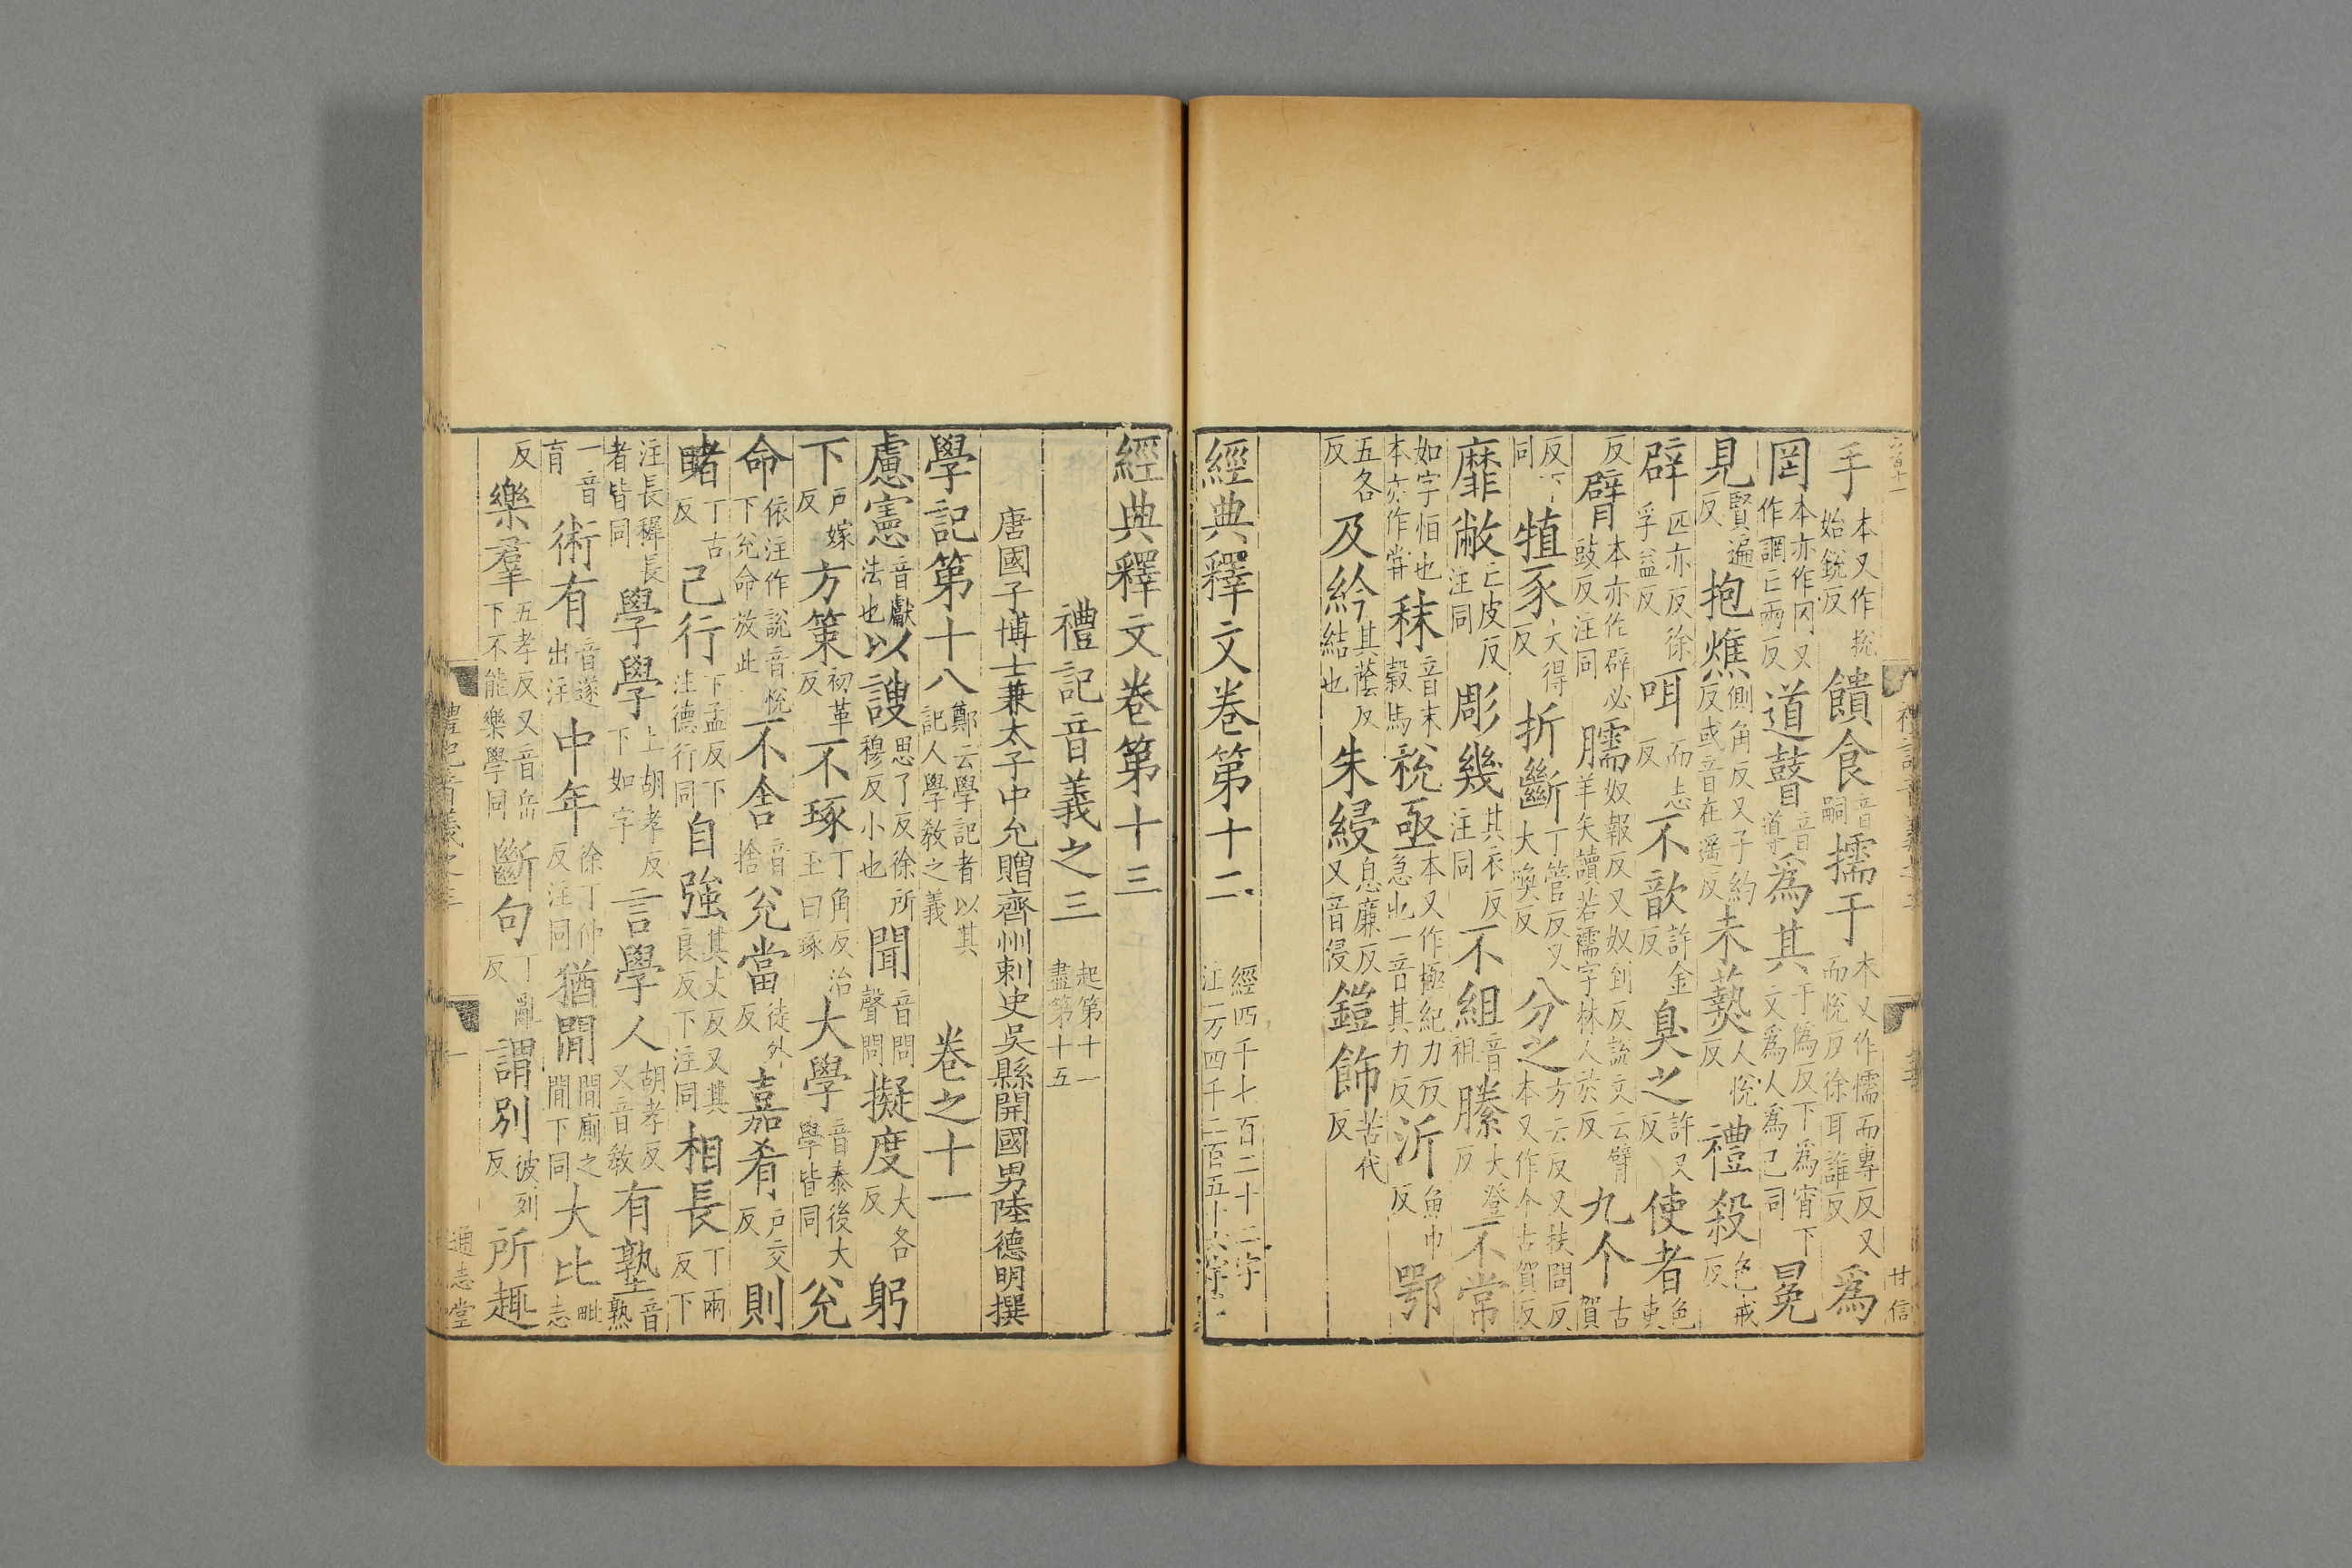 手本又作挩始銳反饋食音嗣擩于本又作懦而專反又而悅反徐耳誰反為
罔本亦作冈又作謂亡兩反道瞽音導為其于偽反下為宵下文為人為已同冕
見賢遍反抱燋側角反又子約反或音在遥反未爇人悅反禮殺色戒反
辟匹亦反徐孚益反咡而志反不歆許金反臭之許又反使者色吏
反臂本亦作辟必豉反注同臑奴報反又奴到反說文云臂羊矢讀若襦字林人於反九个古賀
反下同犆豕大得反折斷丁管反又大喚反分之方云反又扶問反本又作个古賀反
靡敝亡皮反注同彫幾其衣反注同不組音祖縢大登反不常
如字恒也本亦作嘗秣音末穀馬祝亟本又作極紀力反急也一音其力反沂魚巾反鄂
五各反及紟其蔭反結也朱綅息廉反又音侵鎧飾苦代反
經典釋文卷第十二經四千七百二十二字注一万四千二百五十六字
經典釋文卷第十三
禮記音義之三起第十一盡第十五
唐國子博士兼太子中允贈齊州刺史吳縣開國男陸德明撰
學記第十八鄭云學記者以其記人學教之義卷之十一
慮憲音獻法也以謏思了反徐所穆反小也聞音問聲問擬度大各反躬
下戶嫁反方策初革反不琢丁角反治玉曰琢大學音泰後大學皆同兊
命依注作說音悅下兊命放此不舍音捨兊當徒外反嘉肴戶交反則
睹丁古反己行下孟反下注德行同自強其丈反又其良反下注同相長丁兩反下
注長穉長者皆同學學上胡孝反下如字言學人胡孝反又音教有塾音熟
一音育術有音遂出注中年徐丁仲反注同猶閒閒廁之閒下同大比毗志
反樂羣五孝反又音岳下不能樂學同斷句丁亂反謂別彼列反所趣
禮記音義之三
一
通志堂
甘信